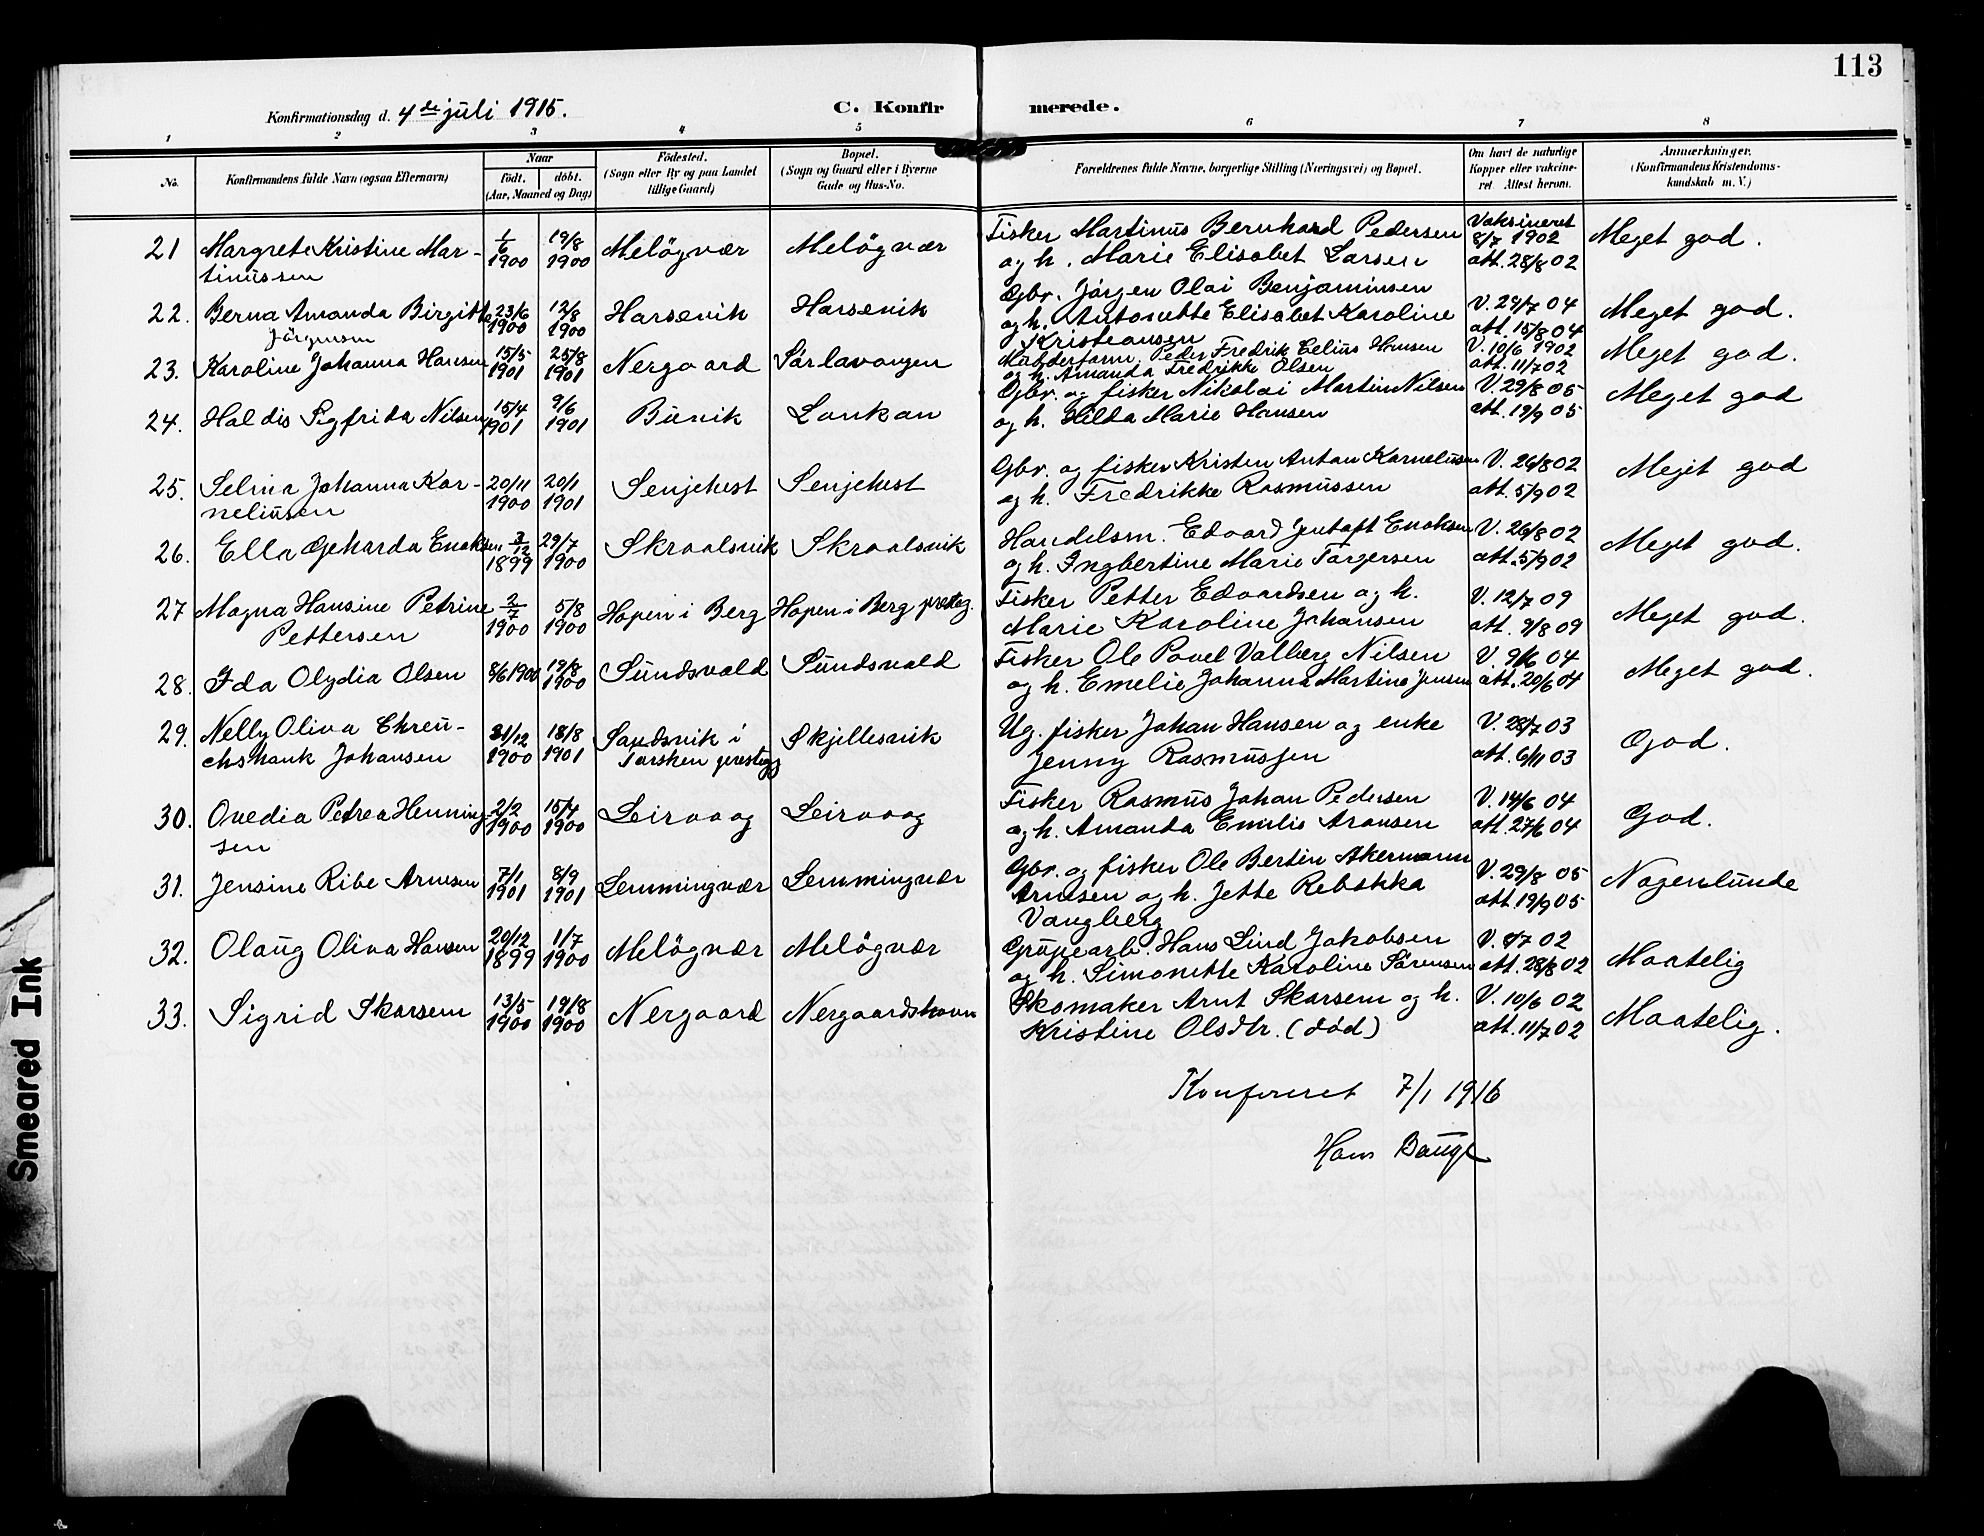 113
Konfirmationsdag d. 4de juli 1915.
C. Konfirmerede.
1 2 3 4 5 6 7 8
No.
Konfirmandens fulde Navn (ogsaa Efternavn)
Naar
født. døbt.
(Aar, Maaned og Dag)
Fødested.
(Sogn eller By og paa Landet
tillige Gaard)
Bopæl.
(Sogn og Gaard eller i Byerne
Gade og Hus-No.
Forældrenes fulde Navne, borgerlige Stilling (Næringsvei) og Bopæl.
Om havt de naturlige
Kopper eller vakcine-
ret. Attest herom.
Anmærkninger.
(Konfirmandens Kristendoms-
kundskab m. V.)
21 Margrete Kristine Mar- 1/6 19/8 Meløgvær Meløgvær Fisker Martinus Bernhard Pedersen Vaksineret 8/7 1902 Meget god.
tinussen 1900 1900 og h. Marie Elisabet Larsen att. 28/8 02
22. Berna Amanda Birgitte 23/6 12/8 Harsevik Harsevik Gbr. Jørgen Olai Benjaminsen V. 29/7 04 Meget god.
Jørgensen 1900 1900 og h. Antonette Elisabet Karoline att. 15/8 04
Kristeansen
23. Karoline Johanna Hansen 15/5 25/8 Nergaard Sørlavangen Peder Fredrik Celius Hansen V. 10/6 1902 Meget god.
1901 1901 og h. Amanda Fredrikke Olsen att. 11/7 02
24. Haldis Sigfrida Nilsen 15/4 9/6 Buvik Lankan Gbr. og fisker Nikolai Martin Nilsen V. 29/8 05 Meget god
1901 1901 og h. Hilda Marie Hansen att. 19/9 05
25. Selma Johanna Kor- 20/11 20/1 Senjehest Senjehest Gbr. og fisker Kristen Antan Kornelius͏sen V. 26/8 02 Meget god
neliussen 1900 1901 og h. Fredrikke Rasmussen att. 5/9 02
26. Ella Geharda Enoksen 3/12 29/7 Skroalsvik Skroalsvik Handelsm. Edvard Enoksen V. 26/8 02 Meget god.
1899 1900 og h. Ingbertine Marie Torgersen att. 5/9 02
27 Magna Hansine Petrine 2/7 5/8 Hopen i Berg Hopen i Berg presteg. Fisker Petter Edvardsen og h. V. 12/7 09 Meget god.
Pettersen 1900 1900 Marie Karoline Johansen att. 9/8 09
28. Ida Olydia Olsen 8/6 1900 19/8 Sundsvald Sundsvald Fisker Ole Pavel Valberg Nilsen V. 9/6 04 Meget god.
1900 og h. Emelie Johanna Martine Jensen att. 20/6 04
29. Nelly Oliva Ehreu- 31/12 18/8 Sandsvik i Skjellesvik Ug. fisker Johan Hansen og enke V. 28/7 03 God.
chshank Johansen 1900 1901 Torsken prestegj Jenny Rasmussen att. 6/11 03
30. Ovedia Petrea Henning- 2/2 15/4 Leirvaag Leirvaag Fisker Rasmus Johan Pedersen V. 14/6 04 God.
sen 1900 1900 og h. Amanda Emilie Aronsen att. 27/6 04
31. Jensine Ribe Arnesen 7/1 8/9 Lemmingvær Lemmingvær Gbr. og fisker Ole Bertin Akermann V. 29/8 05 Nogenlunde
1901 1901 Arnesen og h. Jette Rebekka att. 19/9 05
Vangberg
32. Olaug Oliva Hansen 20/12 1/7 Meløgvær Meløgvær Grubearb. Hans Lind Jakobsen V. 8/7 02 Maatelig
1899 1900 og h. Simonette Karoline Sørensen att. 28/8 02
33. Sigrid Skarsem 13/5 19/8 Nergaard Nergaardshavn Skomaker Arnt Skarsem og h. V. 10/6 02 Maatelig.
1900 1900 Kristine Olsdtr. (død) att. 11/7 02
Konfereret 7/1 1916
Hans Bauge
Smeared Ink